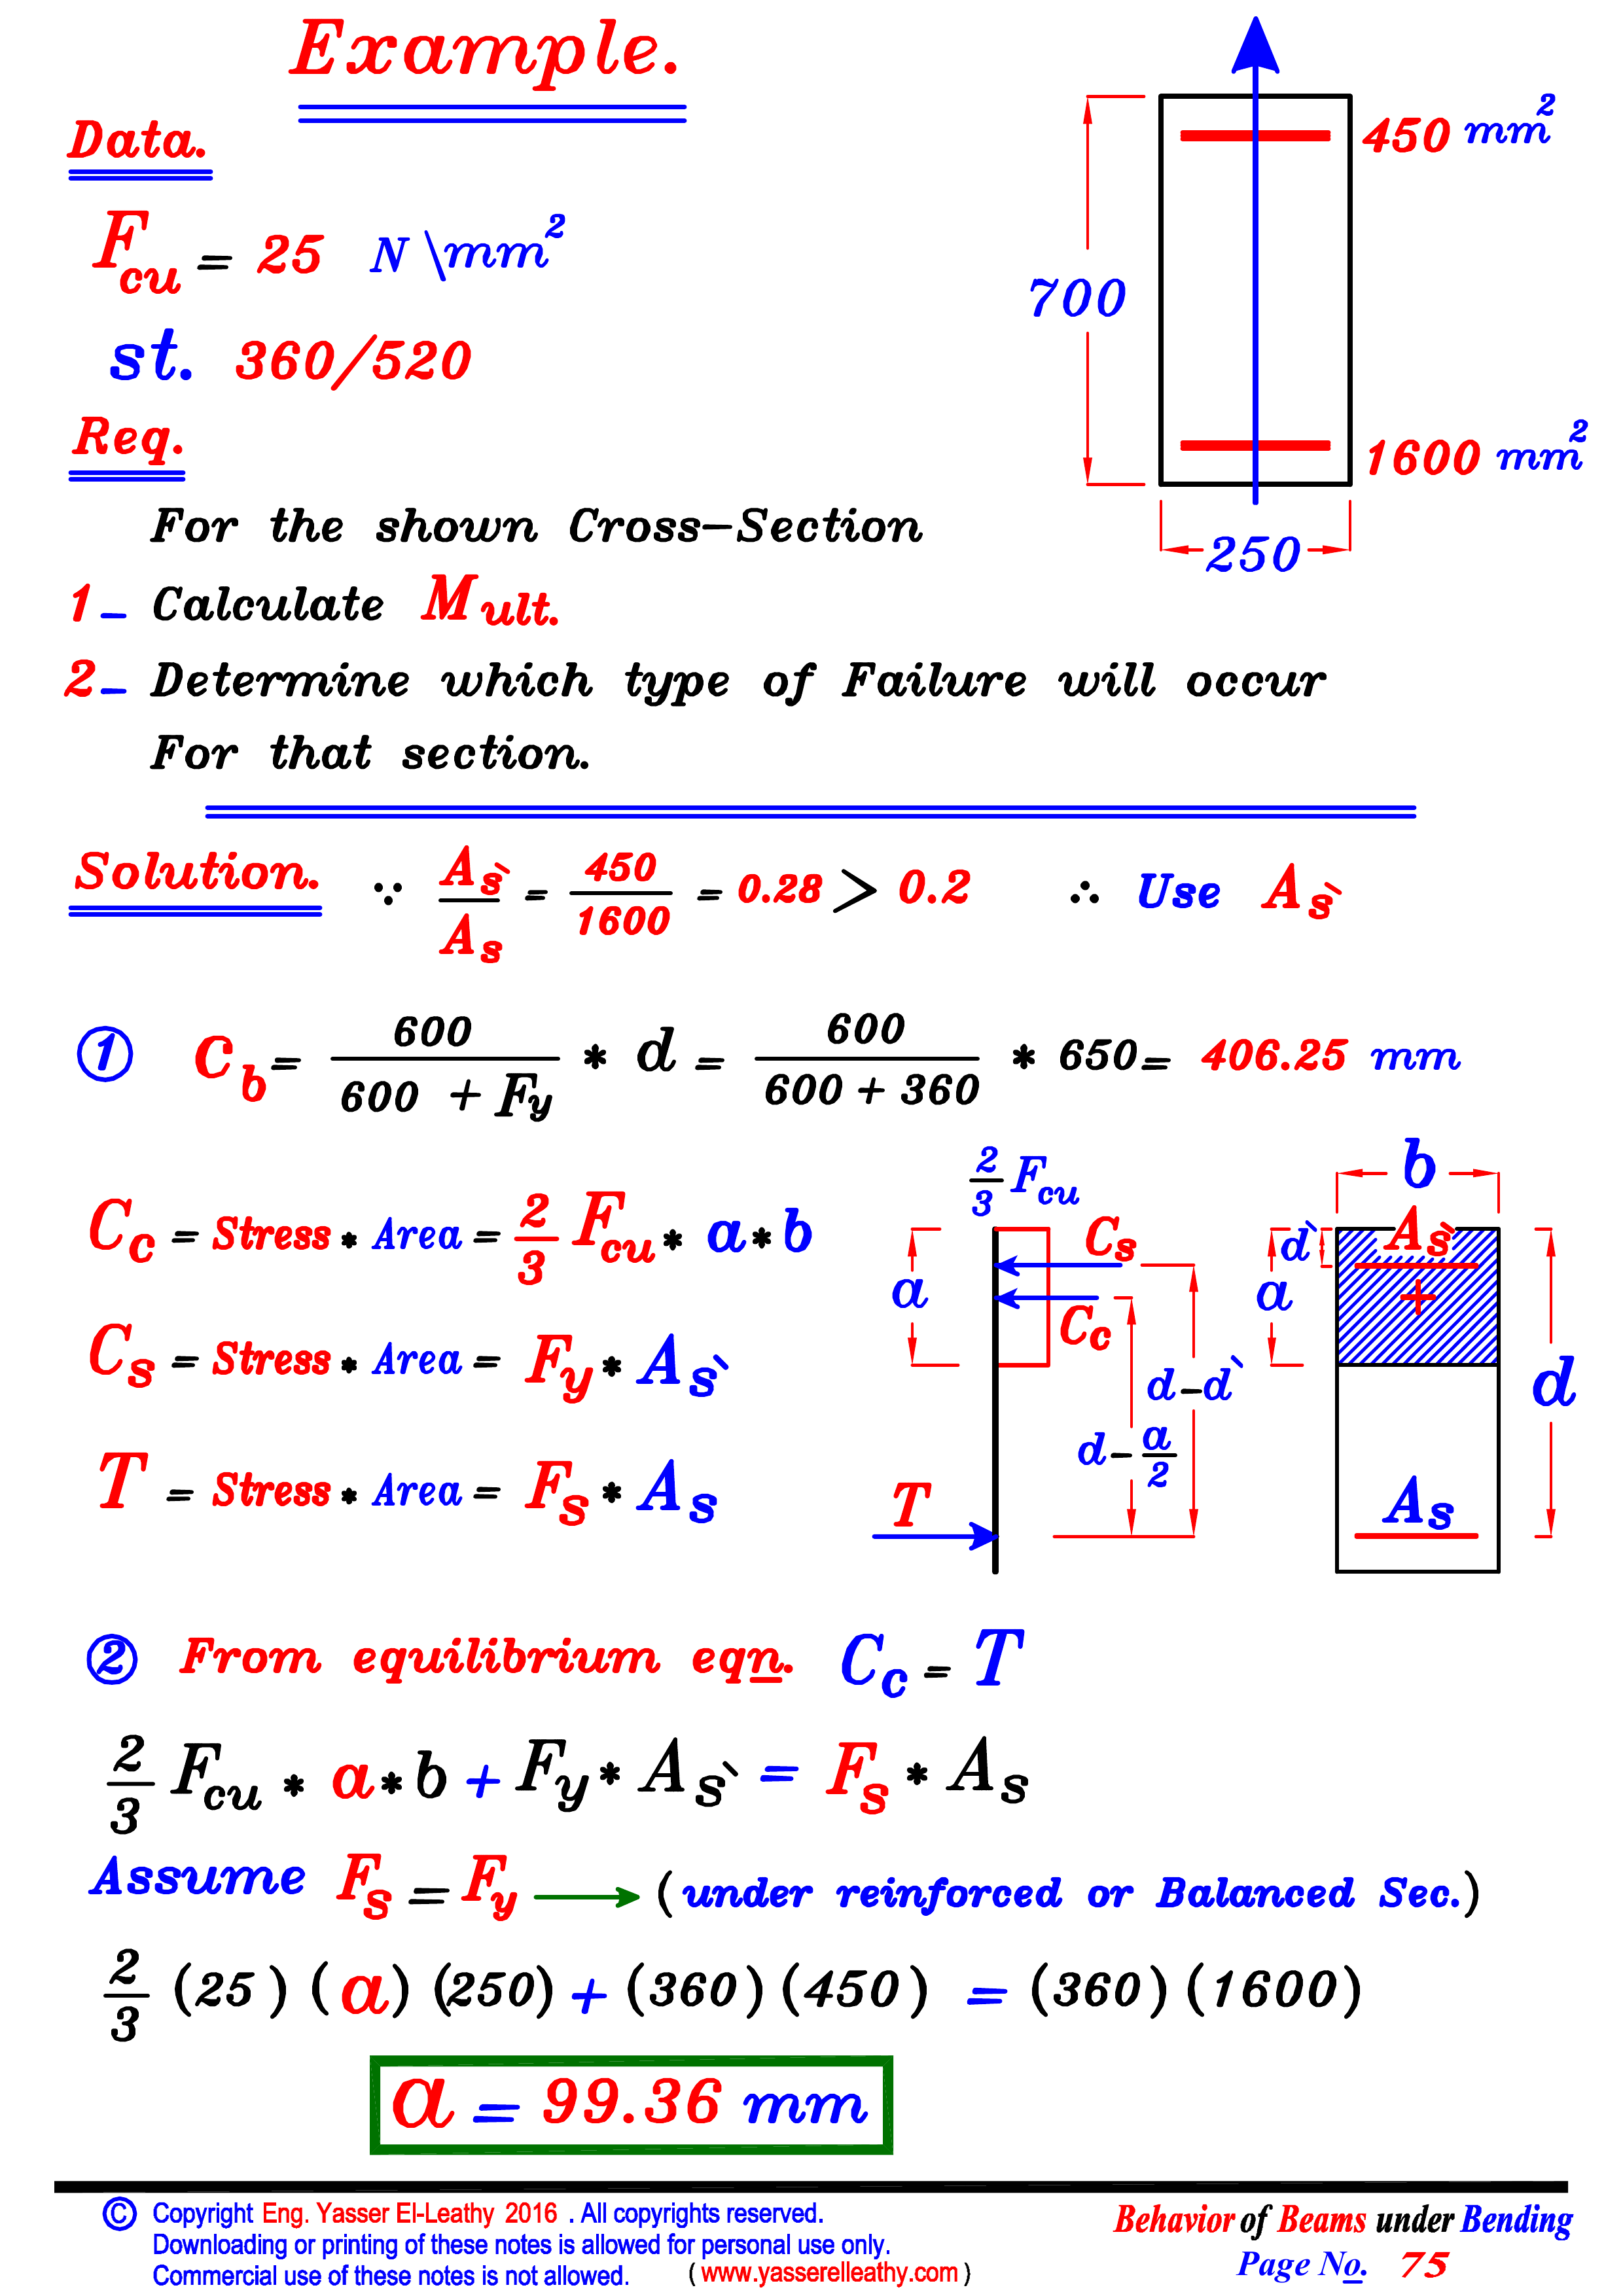 Example.
Data.
Fcu = 25 N\mm²
st. 360/520
450 mm²
700
1600 mm²
250
Req.
For the shown Cross-Section
1- Calculate Mult.
2- Determine which type of Failure will occur
For that section.
Solution. ∵ As` / As = 450 / 1600 = 0.28 > 0.2 ∴ Use As`
① Cb = 600 / (600 + Fy) * d = 600 / (600 + 360) * 650 = 406.25 mm
Cc = Stress * Area = 2/3 Fcu * a * b
Cs = Stress * Area = Fy * As`
T = Stress * Area = Fs * As
2/3 Fcu
a
Cs
Cc
d-d`
d-a/2
T
b
d`
a
As`
+
d
As
② From equilibrium eqn. Cc = T
2/3 Fcu * a * b + Fy * As` = Fs * As
Assume Fs = Fy → (under reinforced or Balanced Sec.)
2/3 (25) (a) (250) + (360) (450) = (360) (1600)
a = 99.36 mm
© Copyright Eng. Yasser El-Leathy 2016 . All copyrights reserved.
Downloading or printing of these notes is allowed for personal use only.
Commercial use of these notes is not allowed. ( www.yasserelleathy.com )
Behavior of Beams under Bending
Page No. 75